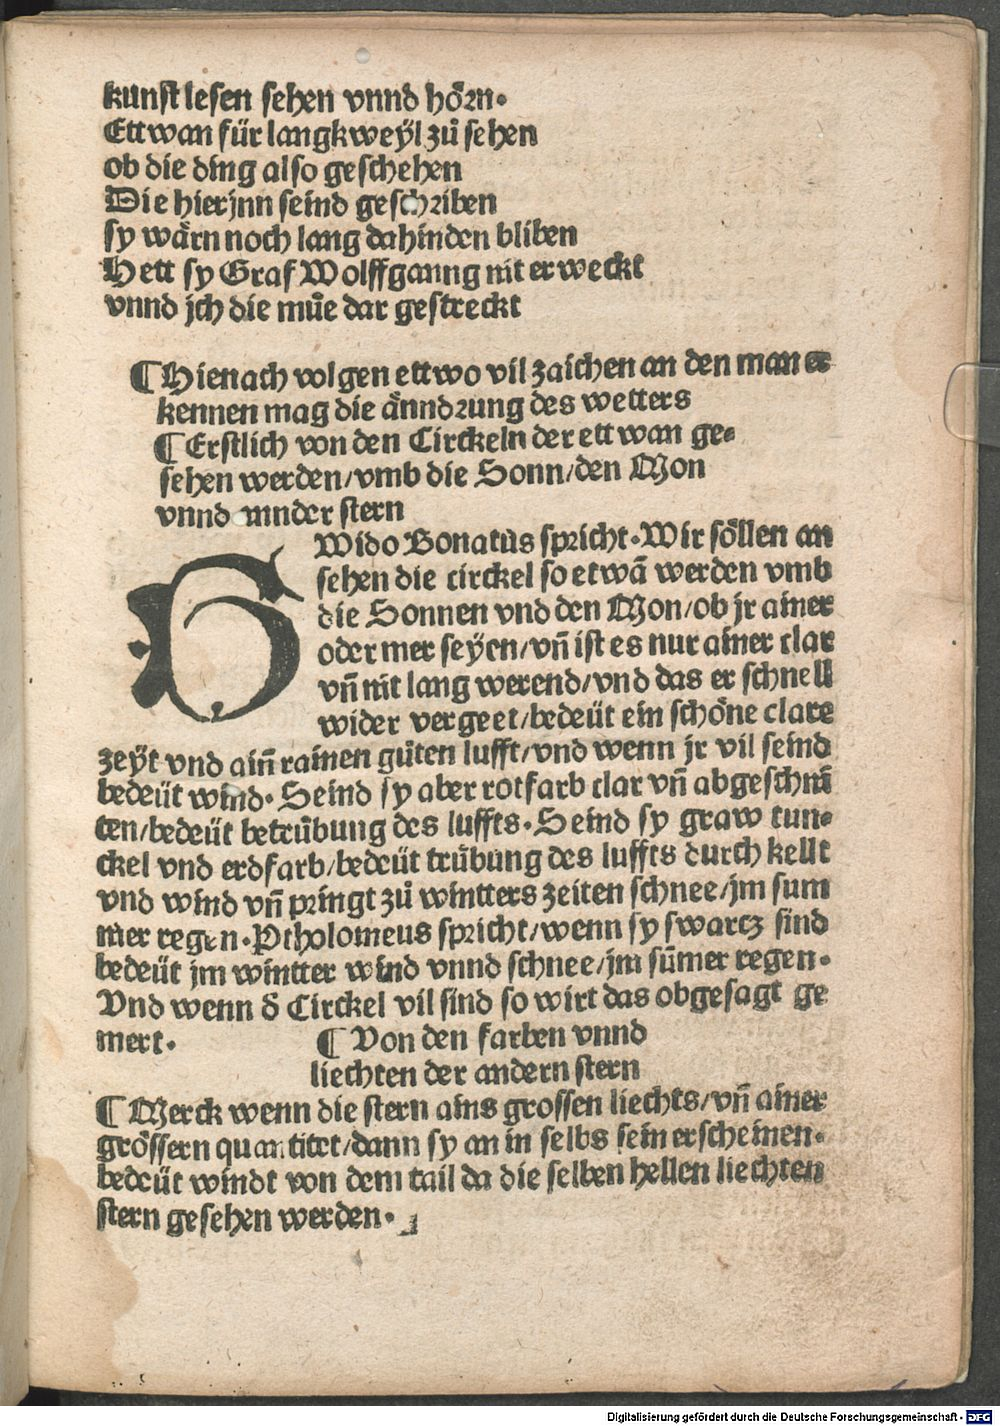 kunst lesen sehen vnnd hörn.
Ettwan für langkweyl zů sehen
ob die ding also geschehen
Die hierjnn seind geschriben
sy wärn noch lang dahinden bliben
Hett sy Graf Wolffganng nit erweckt
vnnd jch die můe dar gestreckt
¶ Hienach volgen ettwo vil zaichen an den man er
kennen mag die ännderung des wetters
¶ Erstlich von den Circkeln der ettwan ge⸗
sehen werden/vmb die Sonn/den Mon
vnnd annder stern
GWido Bonatus spricht. Wir söllen an
sehen die circkel so etwā werden vmb
die Sonnen vnd den Mon/ob jr ainer
oder mer seyen/vn̄ ist es nur ainer clar
vn̄ nit lang werend/vnd das er schnell
wider vergeet/bedeüt ein schöne clare
zeyt vnd ain̄ rainen gůten lufft/vnd wenn jr vil seind
bedeüt wind. Seind sy aber rotfarb clar vn̄ abgeschni
ten/bedeüt betrůbung des luffts. Seind sy graw tun⸗
ckel vnd erdfarb/bedeüt trůbung des luffts durch kellt
vnd wind vn̄ pringt zů wintters zeiten schnee/jm sum
mer regen. Ptholomeus spricht/wenn sy swartz sind
bedeüt jm wintter wind vnnd schnee/jm sūmer regen.
Vnd wenn d̄ Circkel vil sind so wirt das obgesagt ge
mert.
¶ Von den farben vnnd
liechten der andern stern
¶ Merck wenn die stern ains grossen liechts/vn̄ ainer
grössern quantitet/dann sy an in selbs sein erscheinen.
bedeüt windt von dem tail da die selben hellen liechten
stern gesehen werden.
Digitalisierung gefördert durch die Deutsche Forschungsgemeinschaft - DFG